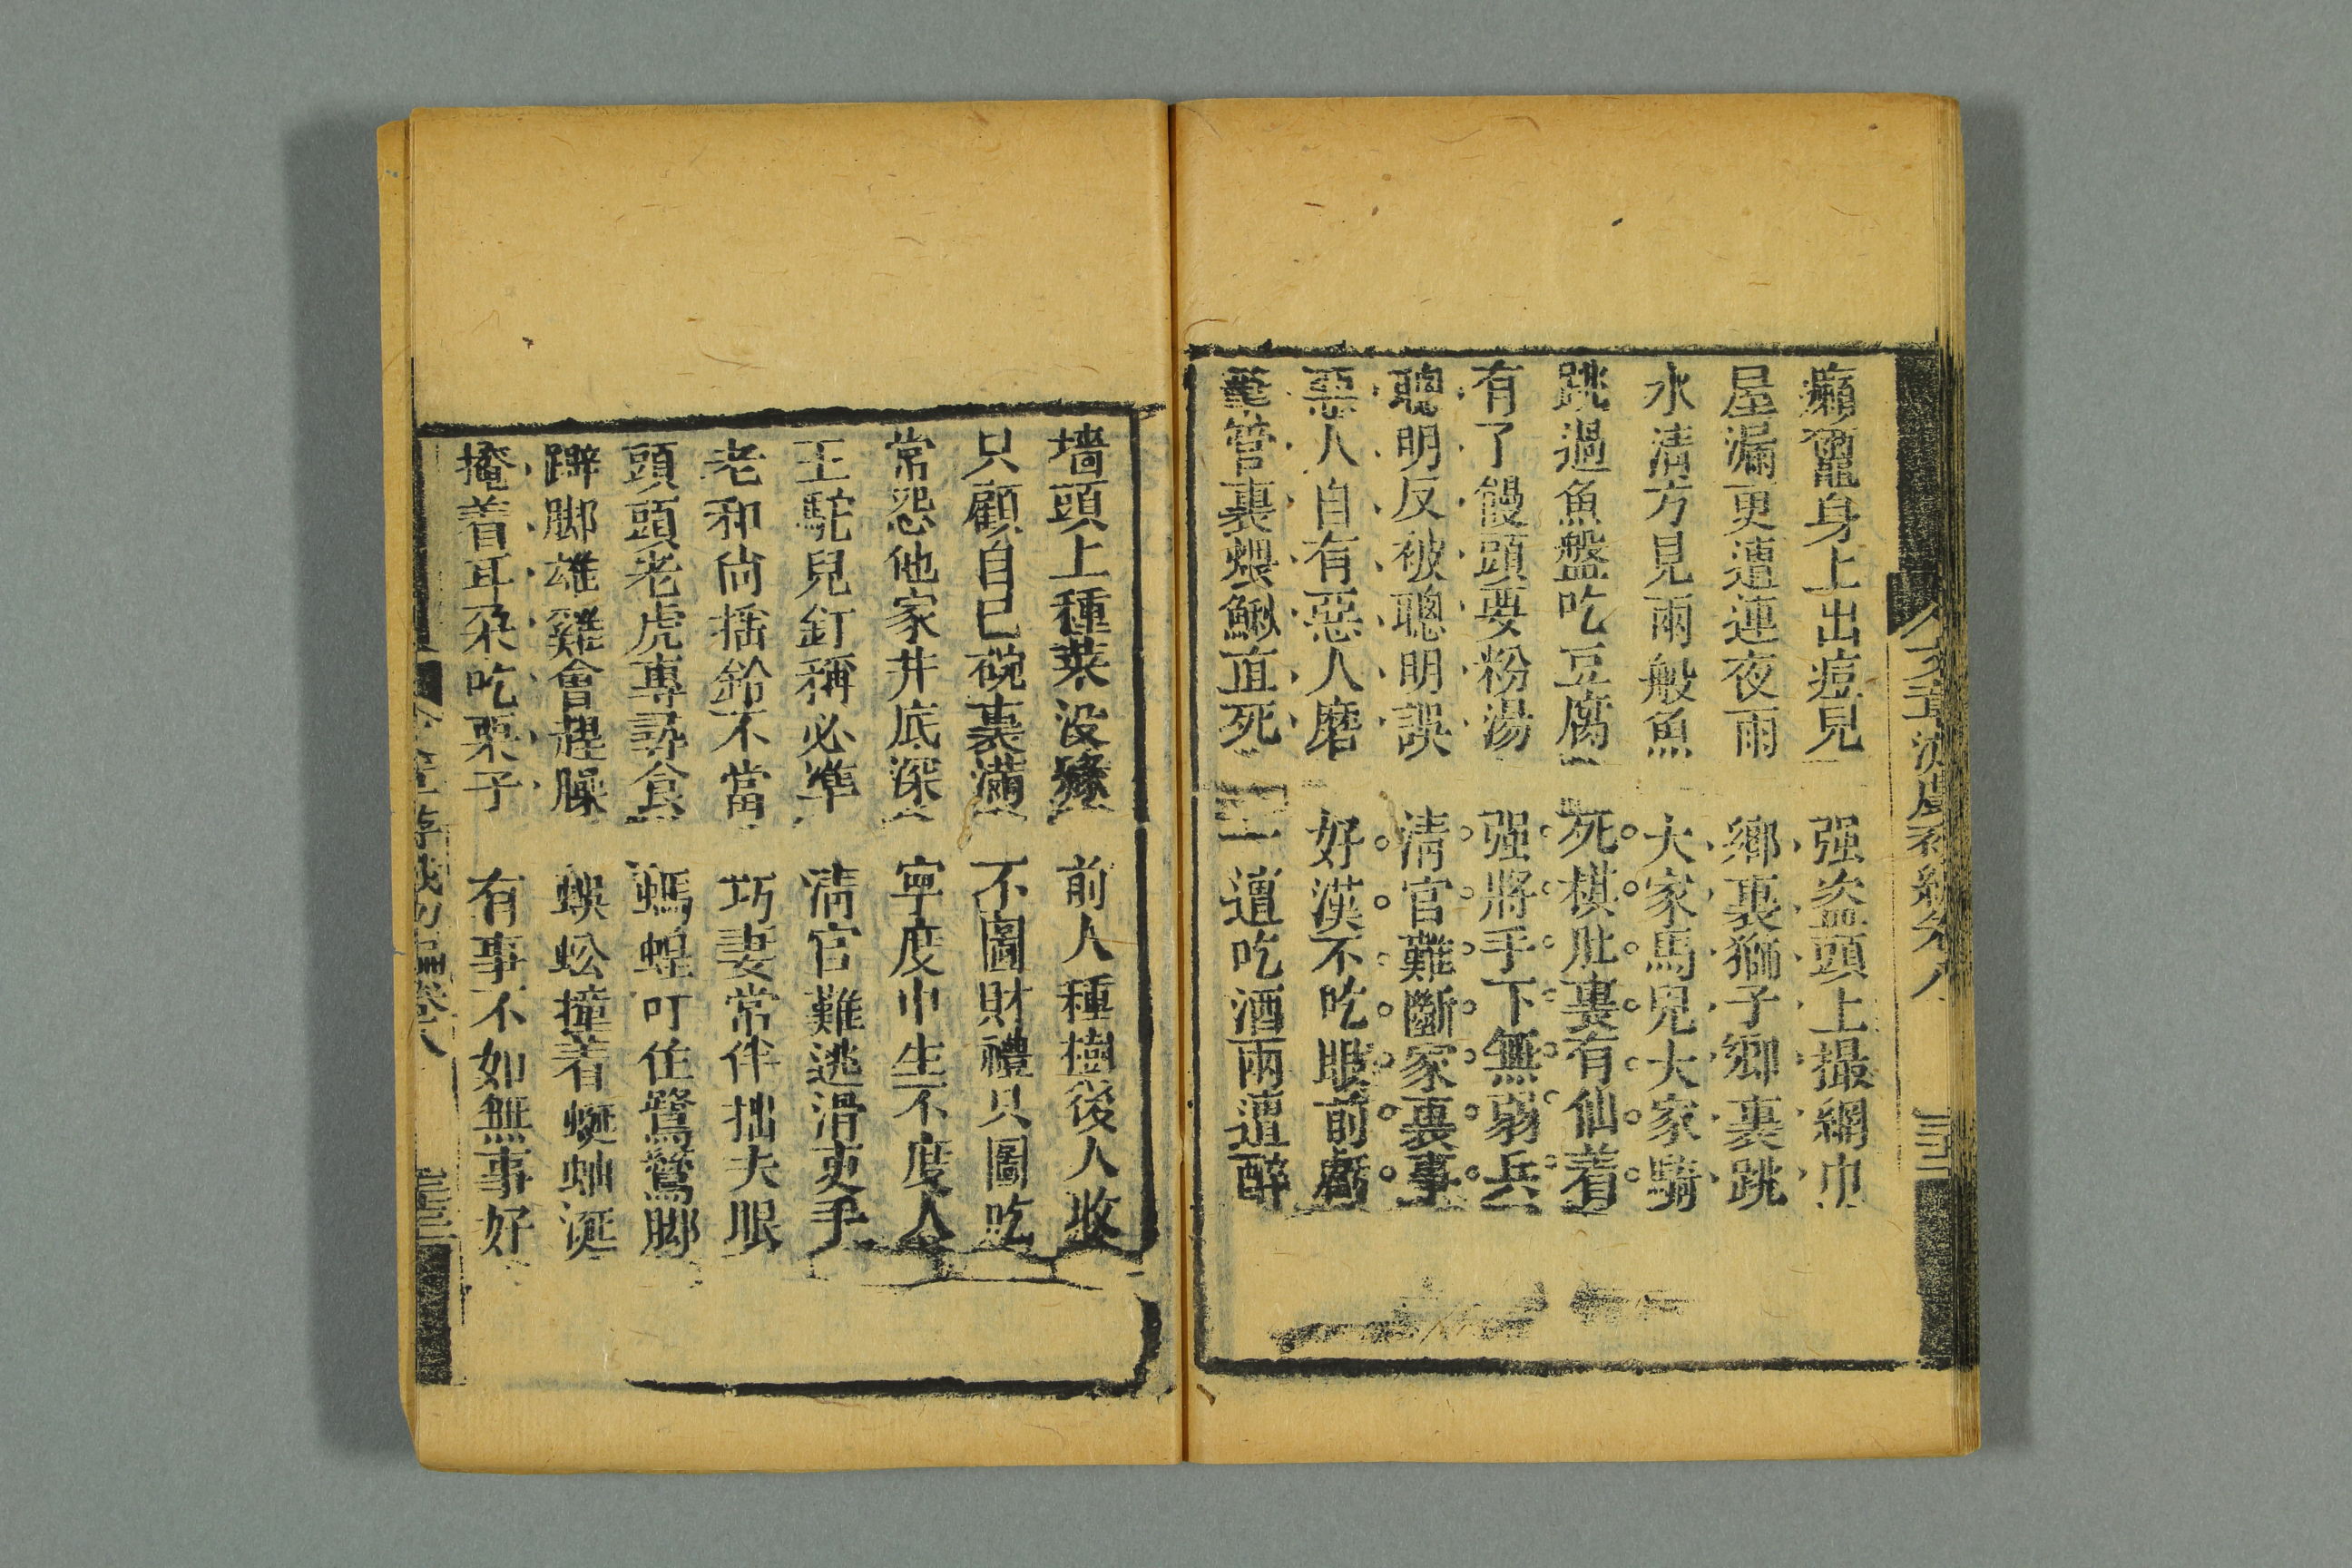 身上出痘兒　强盗頭上撮網巾
屋漏更遭連夜雨　鄉裏獅子鄉裏跳
水清方見兩般魚　大家馬兒大家騎
跳過魚盤吃豆腐　死棋肚裏有仙着
有了饅頭要粉湯　强將手下無弱兵
聰明反被聰明誤　清官難斷家裏事
惡人自有惡人磨　好漢不吃眼前虧
筆管裏煨鰍直死　一遭吃酒兩遭醉
墻頭上種菜没緣　前人種樹後人收
只顧自已碗裏滿　不圖財禮只圖吃
常怨他家井底深　寜度巾生不度人
王駝兒釘稱必準　清官難逃滑吏手
老和尚摇鈴不當　巧妻常伴拙夫眠
頭頭老虎專尋食　螞蝗叮住鷺鷥脚
躃脚雄雞會趕臊　蜈蚣撞着蜒蚰涎
掩着耳朶吃栗子　有事不如無事好